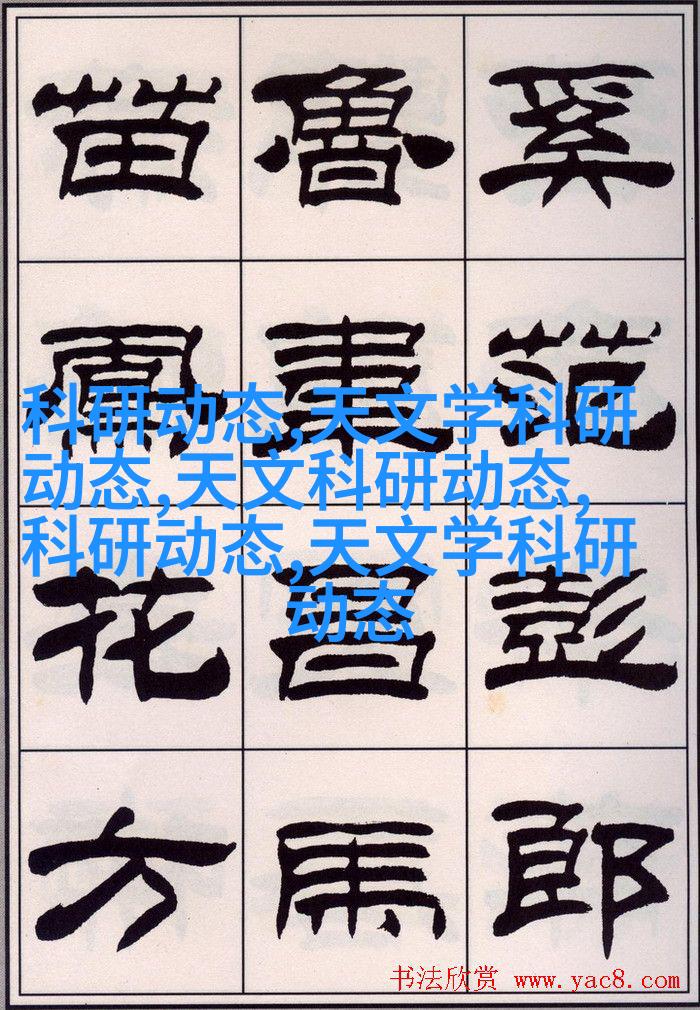 奚范彭郎
魯韋昌馬
苗鳳花方
科研动态,天文学科研
动态,天文科研动态,
科研动态,天文学科研
动态
书法欣赏 www.yac8.com